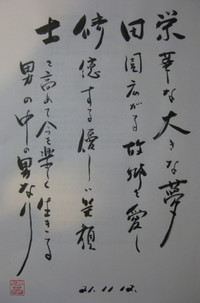 栄華な大きな夢
田園広がる故郷を愛し
修 する優しい笑顔
士を高めて今を楽しく生きる
男の中の男なり
21.11.12.